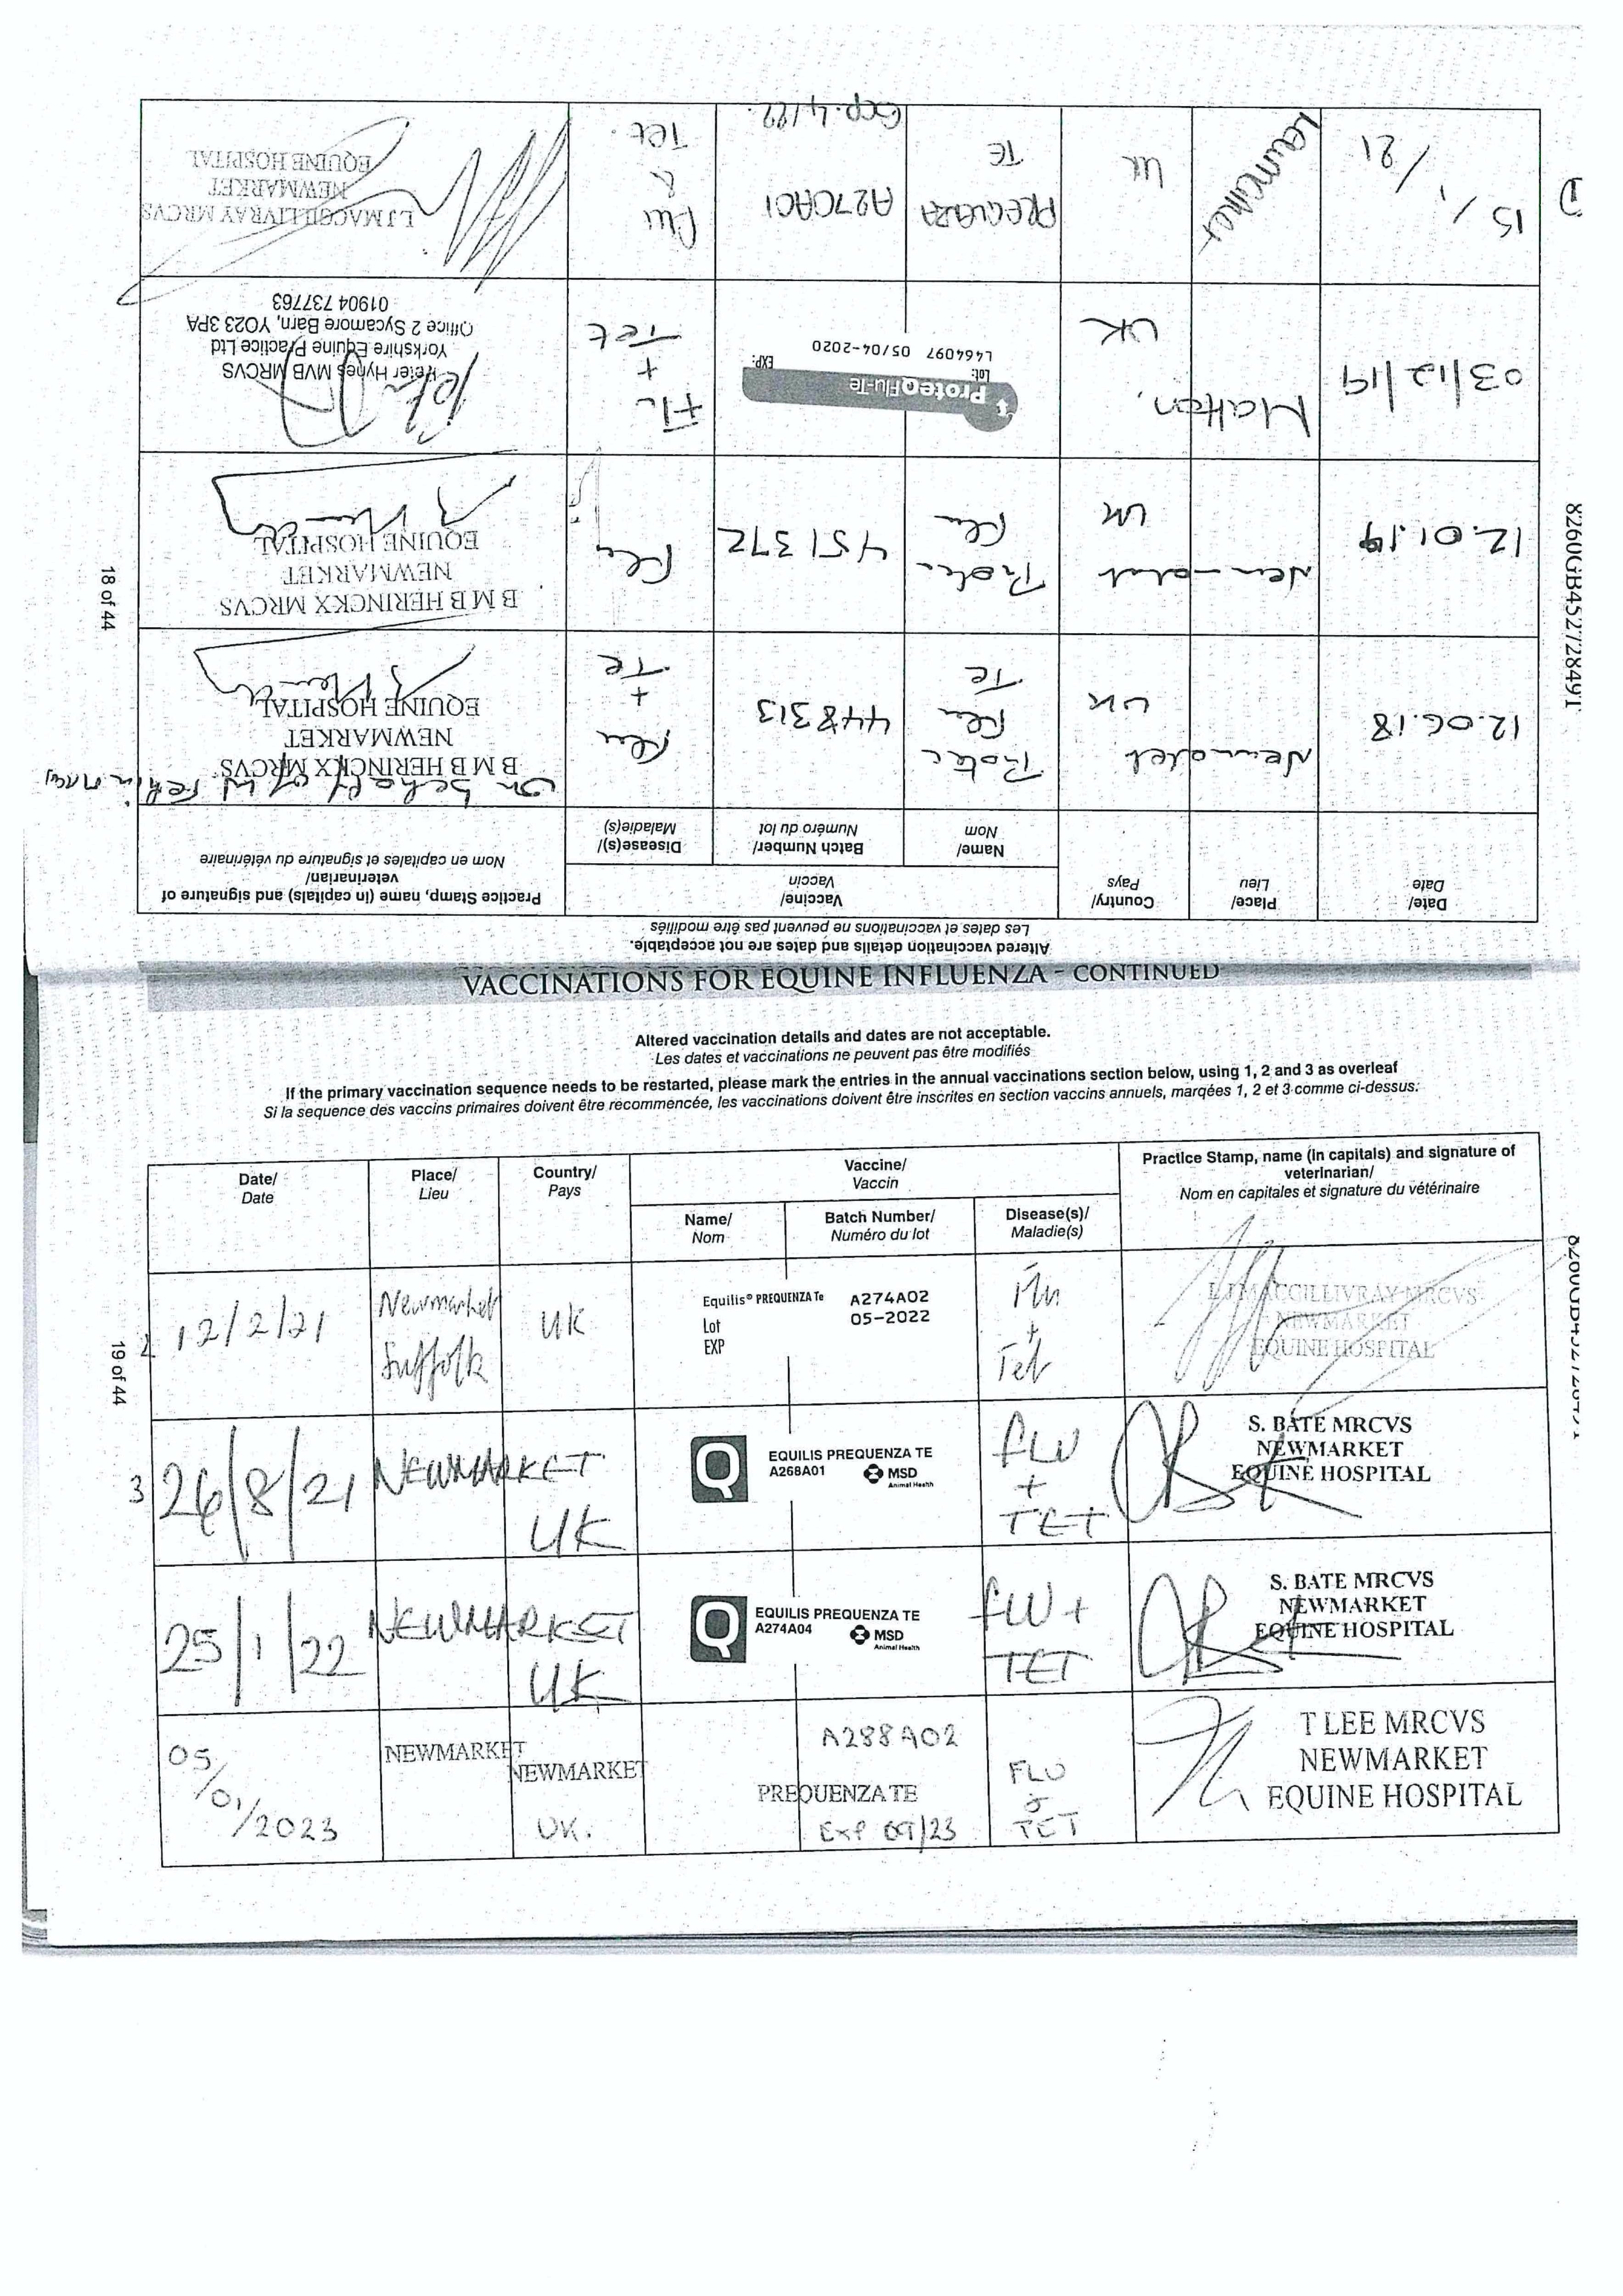 18 of 44
8260GB45272849T
Altered vaccination details and dates are not acceptable.
Les dates et vaccinations ne peuvent pas être modifiés
Date/
Date
Place/
Lieu
Country/
Pays
Vaccine/
Vaccin
Name/
Nom
Batch Number/
Numéro du lot
Disease(s)/
Maladie(s)
Practice Stamp, name (in capitals) and signature of
veterinarian/
Nom en capitales et signature du vétérinaire
12.06.18
Newmarket
UK
Proteq
Flu
Te
448313
Flu
+
Te
On behalf of
B M B HERINCKX MRCVS
NEWMARKET
EQUINE HOSPITAL
12.01.19
Newmarket
UK
Proteq
Flu
451372
Flu
B M B HERINCKX MRCVS
NEWMARKET
EQUINE HOSPITAL
03/12/19
Malton,
UK
ProteqFlu-Te
Lot: EXP:
L464097 05/04-2020
Flu
+
Tet
Peter Hynes MVB MRCVS
Yorkshire Equine Practice Ltd
Office 2 Sycamore Barn, YO23 3PA
01904 737763
15/1/21
UK
PREQUENZA
TE
A270A01
Exp. 4/22.
Flu
&
Tet.
L J MACGILLIVRAY MRCVS
NEWMARKET
EQUINE HOSPITAL
VACCINATIONS FOR EQUINE INFLUENZA - CONTINUED
Altered vaccination details and dates are not acceptable.
Les dates et vaccinations ne peuvent pas être modifiés
If the primary vaccination sequence needs to be restarted, please mark the entries in the annual vaccinations section below, using 1, 2 and 3 as overleaf
Si la sequence des vaccins primaires doivent être recommencée, les vaccinations doivent être inscrites en section vaccins annuels, marqées 1, 2 et 3 comme ci-dessus:
19 of 44
Date/
Date
Place/
Lieu
Country/
Pays
Vaccine/
Vaccin
Name/
Nom
Batch Number/
Numéro du lot
Disease(s)/
Maladie(s)
Practice Stamp, name (in capitals) and signature of
veterinarian/
Nom en capitales et signature du vétérinaire
2 12/2/21
Newmarket
Suffolk
UK
Equilis® PREQUENZA Te A274A02
Lot 05-2022
EXP
Flu
+
Tet
L J MACGILLIVRAY MRCVS
NEWMARKET
EQUINE HOSPITAL
3 26/8/21
NEWMARKET
UK
Q
EQUILIS PREQUENZA TE
A268A01 MSD
Animal Health
FLU
+
TET
S. BATE MRCVS
NEWMARKET
EQUINE HOSPITAL
25/1/22
NEWMARKET
UK
Q
EQUILIS PREQUENZA TE
A274A04 MSD
Animal Health
FLU +
TET
S. BATE MRCVS
NEWMARKET
EQUINE HOSPITAL
05/01/2023
NEWMARKET
NEWMARKET
UK.
A288A02
PREQUENZA TE
Exp 09/23
FLU
&
TET
T LEE MRCVS
NEWMARKET
EQUINE HOSPITAL